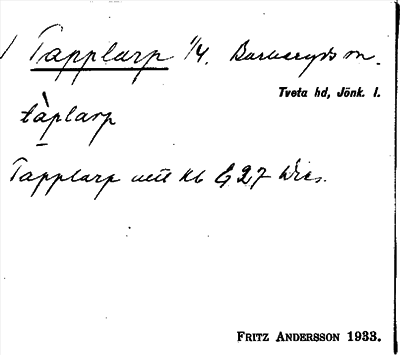 Tapplarp 1/4. Barkeryds sn.
Tveta hd, Jönk. l.
tàplarp
Tapplarp utt kb G 27
FRITZ ANDERSSON 1933.